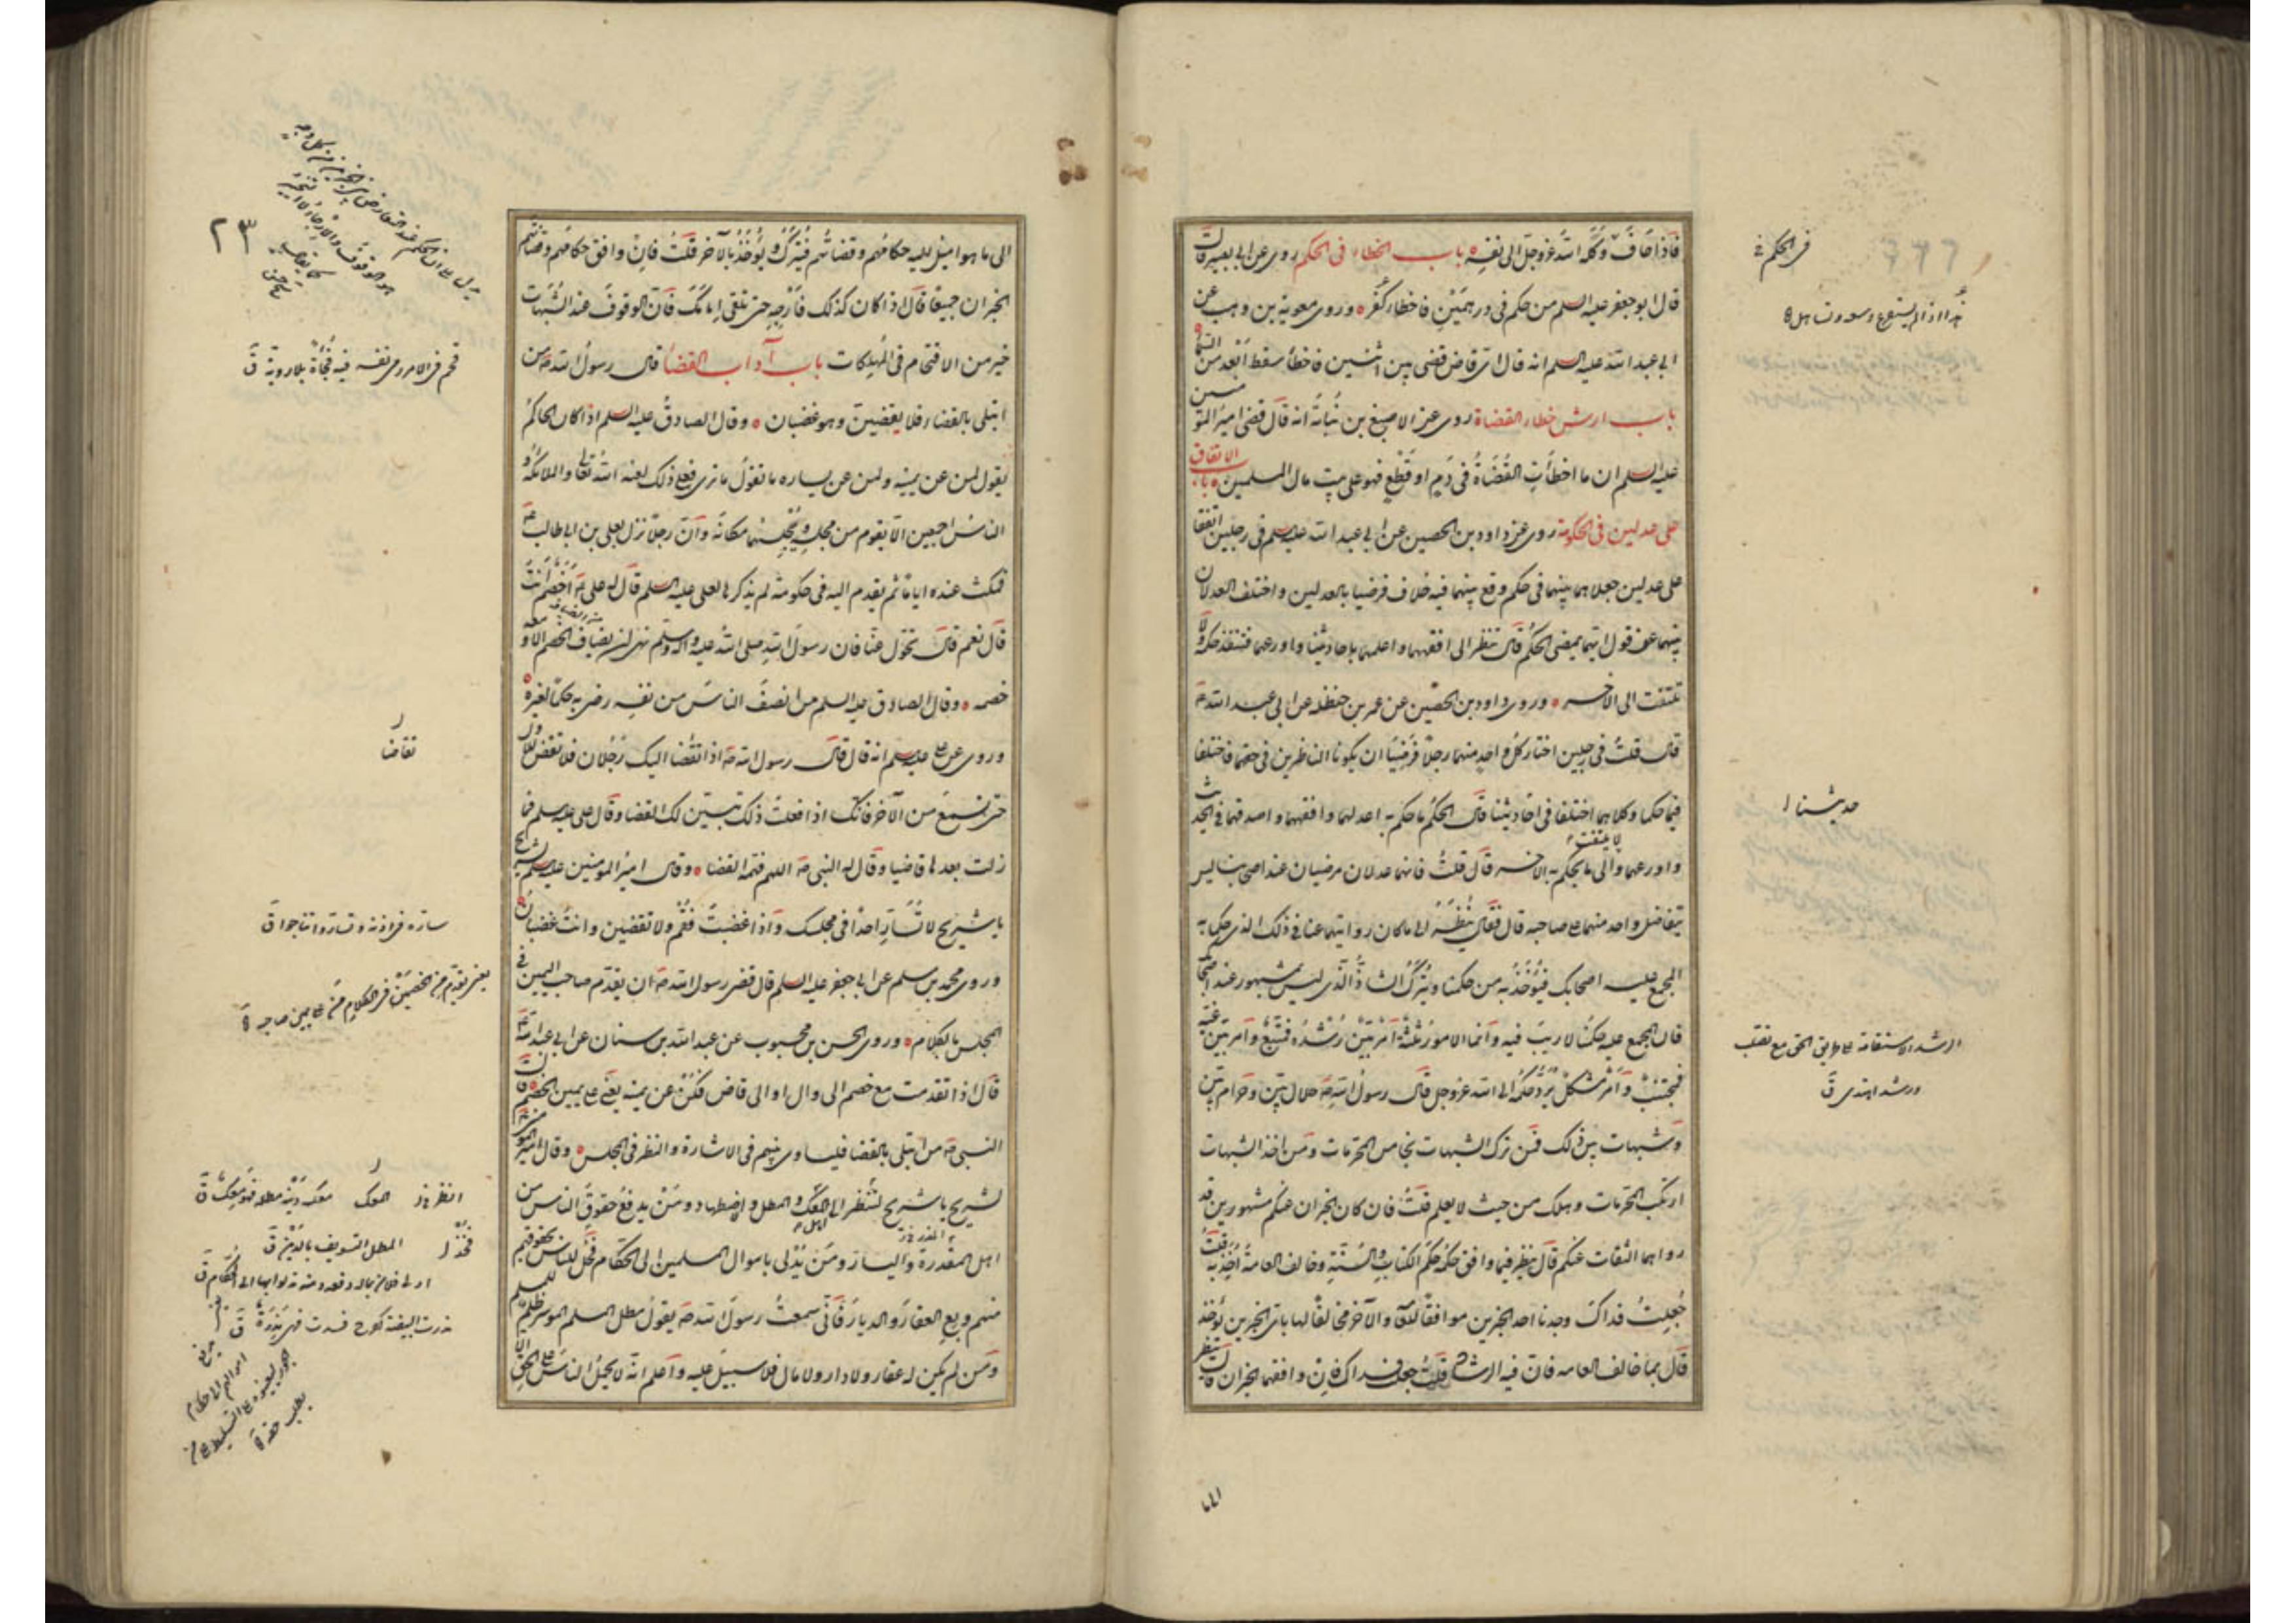 فى الحكم خ
فاذا حاف وكله الله عز وجل الى نفسه باب الخطاء فى الحكم روى عن ابى بصير قال
قال ابو جعفر عليه السلم من حكم فى درهمين فاخطاء كفر وروى معوية بن وهب عن
ابى عبد الله عليه السلم انه قال اى قاض قضى بين اثنين فاخطأ سقط ابعد من السماء
باب ارش خطاء القضاة روى عن الاصبغ بن نباتة انه قال قضى امير المؤمنين
عليه السلم ان ما اخطأت القضاة فى دم او قطع فهو على بيت مال المسلمين باب الاتفاق
على عدلين فى الحكومة روى عن داود بن الحصين عن ابى عبد الله عليه سلم فى رجلين اتفقا
على عدلين جعلاهما بينهما فى حكم وقع بينهما فيه خلاف فرضيا بالعدلين واختلف العدلان
بينهما عن قول ايهما يمضى الحكم قال ينظر الى افقههما واعلمهما باحاديثنا واورعهما فينفذ حكمه ولا
يلتفت الى الاخر وروى داود بن الحصين عن عمر بن حنظلة عن ابى عبد الله ع
قال قلت فى رجلين اختار كل واحد منهما رجلا فرضيا ان يكونا الناظرين فى حقهما فاختلفا
فيما حكما وكلاهما اختلفا فى احاديثنا قال الحكم ما حكم به اعدلهما وافقههما واصدقهما فى الحديث
حديثنا
واورعهما ولا يلتفت الى ما يحكم به الاخر قال قلت فانهما عدلان مرضيان عند اصحابنا ليس
يتفاضل واحد منهما على صاحبه قال فقال ينظر الى ما كان روايتهما عنا فى ذلك الذى حكما به
المجمع عليه اصحابك فيؤخذ به من حكمنا ويترك الشاذ الذى ليس بمشهور عند اصحابك
قال المجمع عليه حكمنا لا ريب فيه وانما الامور ثلثة امر بين رشده فمتبع وامر بين غيه
الرشد الاستقامة على طريق الحق مع تصلب
ورشد اهتدى ق
فمجتنب وامر مشكل يرد حكمه الى الله عز وجل قال رسول الله ص حلال بين وحرام بين
وشبهات بين ذلك فمن ترك الشبهات نجا من المحرمات ومن اخذ الشبهات
ارتكب المحرمات وهلك من حيث لا يعلم قلت فان كان الخبران عنكم مشهورين قد
رواهما الثقات عنكم قال ينظر فيما وافق حكمه حكم الكتاب والسنة وخالف العامة اخذ به قلت
جعلت فداك وجدنا احد الخبرين موافقا للعامة والاخر مخالفا لها باى الخبرين يؤخذ
قال بما خالف العامه فان فيه الرشاد قلت جعلت فداك فان وافقهما الخبران قال ينظر
الى ما هم اميل اليه حكامهم وقضاتهم فيترك ويؤخذ بالاخر قلت فان وافق حكامهم وقضاتهم
الخبران جميعا قال اذا كان كذلك فارجه حتى تلقى امامك فان الوقوف عند الشبهات
خير من الاقتحام فى الهلكات باب آداب القضا قال رسول الله ص من
٢٣
قحم فى الامر رمى نفسه فيه فجأة بلا روية ق
ابتلى بالقضاء فلا يقضين وهو غضبان وقال الصادق عليه السلم اذا كان الحاكم
يقول لمن عن يمينه ولمن عن يساره ما تقول ما ترى فعلى ذلك لعنة الله تعالى والملائكة و
الناس اجمعين الا يقوم من مجلسه ويجلسهما مكانه وان رجلا نزل بعلى بن ابى طالب ع
فمكث عنده اياما ثم تقدم اليه فى حكومة لم يذكرها لعلى عليه السلم قال له على ع اخصم انت
قال نعم قال تحول عنا فان رسول الله صلى الله عليه واله وسلم نهى ان يضاف الخصم الا و معه
خصمه وقال الصادق عليه السلم من انصف الناس من نفسه رضى به حكما لغيره
وروى عن على عليه سلم انه قال قال رسول الله ص اذا تقضا اليك رجلان فلا تقض للاول
تقاضا
حتى تسمع من الاخر فانك اذا فعلت ذلك تبين لك القضا وقال على عليه سلم فما
زلت بعدها قاضيا وقال له النبى ص اللهم فهمه القضا وقال امير المومنين عليه سلم لشريح
يا شريح لا تسار احدا فى مجلسك واذا غضبت فقم ولا تقضين وانت غضبان
ساره فى اذنه وتساروا تناجوا ق
وروى محمد بن مسلم عن ابى جعفر عليه السلم قال قضى رسول الله ص ان يقدم صاحب اليمين فى
يعنى يقدم من الخصمين فى الكلام من على يمين صاحبه
المجلس بالكلام وروى الحسن بن محبوب عن عبد الله بن سنان عن ابى عبد الله ع
قال اذا تقدمت مع خصم الى وال او الى قاض فكن عن يمينه يعنى على يمين الخصم قال
النبى ص من ابتلى بالقضا فليساوى بينهم فى الاشارة والنظر فى المجلس وقال امير المومنين
لشريح يا شريح انظر الى اهل المعك والمطل والاضطهاد ومن يدفع حقوق الناس من
اهل المقدرة واليسار ومن يدلى باموال المسلمين الى الحكام فخذ للناس بحقوقهم
المطل التسويف بالدين ق
منهم وبع العقار والديار فانى سمعت رسول الله ص يقول مطل المسلم الموسر ظلم للمسلم
ومن لم يكن له عقار ولا دار ولا مال فلا سبيل عليه واعلم انه لا يحمل الناس على الحق الا